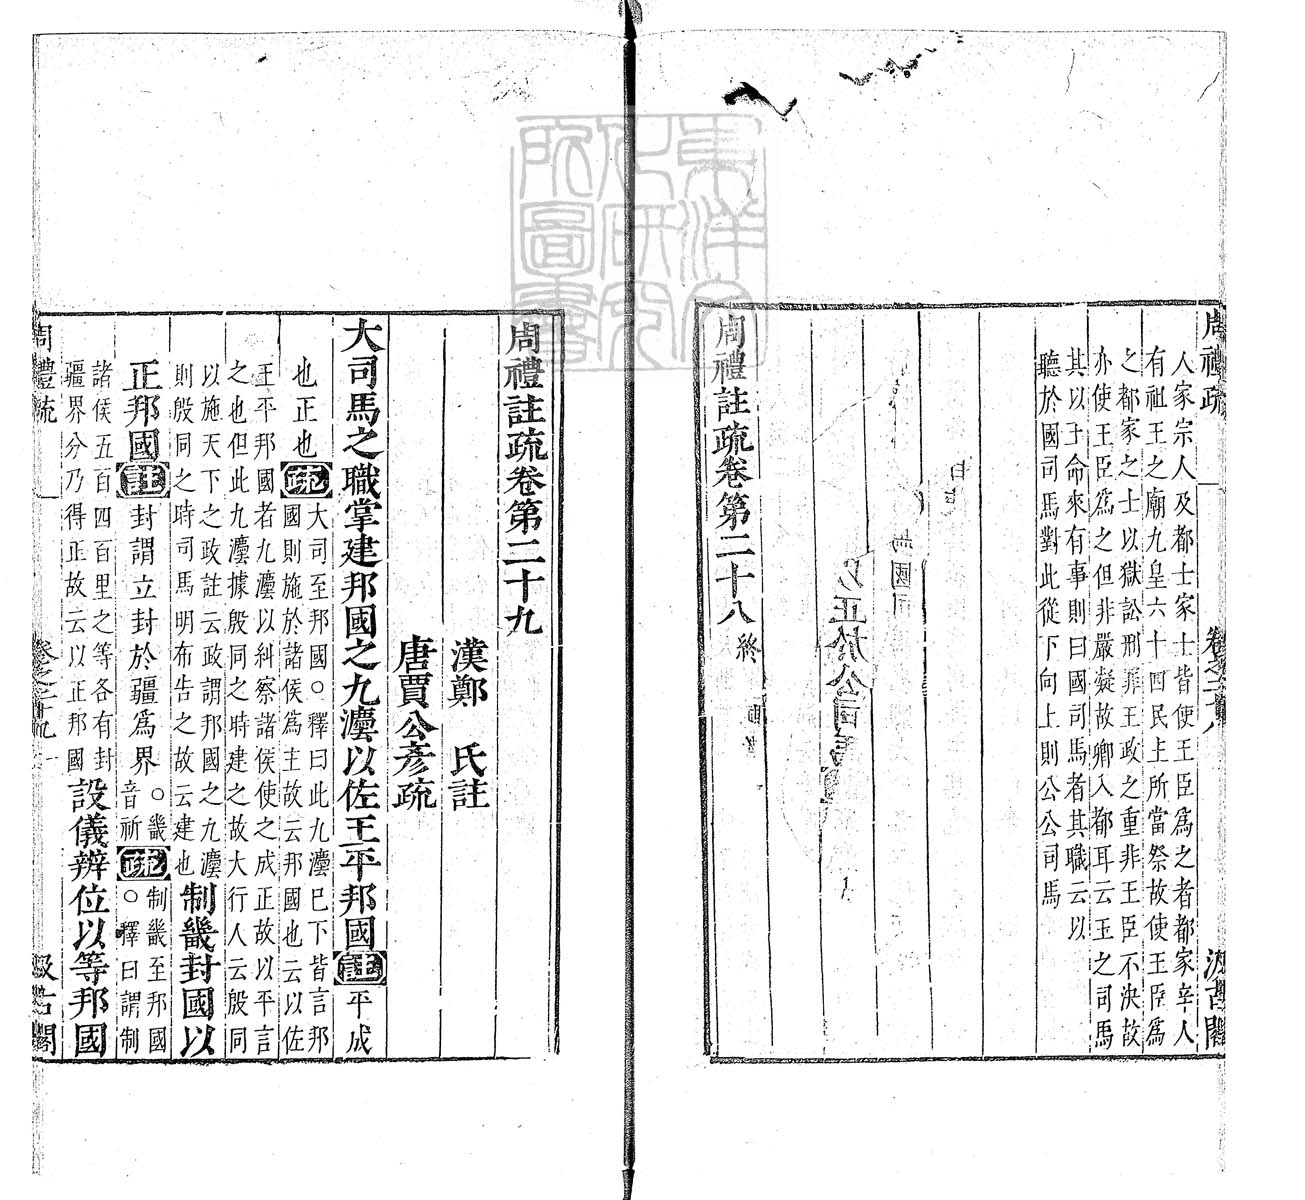 周禮疏
卷之二十八
汲古閣
人家宗人及都士家士皆使王臣爲之者都家宰人
有祖王之廟九皇六十四民主所當祭故使王臣爲
之都家之士以獄訟刑罪王政之重非王臣不決故
亦使王臣爲之但非嚴凝故卿入都耳云玉之司馬
其以王命來有事則曰國司馬者其職云以
聽於國司馬對此從下向上則公公司馬
以正於公司馬
周禮註疏卷第二十八 終
周禮註疏卷第二十九
漢鄭 氏註
唐賈公彥疏
大司馬之職掌建邦國之九灋以佐王平邦國註平成
也正也疏大司至邦國○釋曰此九灋已下皆言邦
國則施於諸侯爲主故云邦國也云以佐
王平邦國者九灋以糾察諸侯使之成正故以平言
之也但此九灋據殷同之時建之故大行人云殷同
以施天下之政註云政謂邦國之九灋
則殷同之時司馬明布告之故云建也制畿封國以
正邦國註封謂立封於疆爲界○畿
音祈疏制畿至邦國
○釋曰謂制
諸侯五百四百里之等各有封
疆界分乃得正故云以正邦國設儀辨位以等邦國
周禮疏
卷之二十九
一
汲古閣